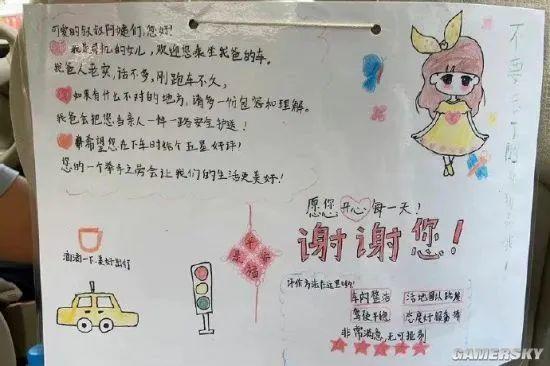 可爱的叔叔阿姨们，您好！
我是司机的女儿，欢迎您来坐我爸的车。
我爸人老实，话不多，刚跑车不久，
如果有什么不对的地方，请多一份包容和理解。
我爸会把您当亲人一样一路安全护送！
希望您在下车时给个五星好评！
您的一个举手之劳会让我们的生活更美好！
愿您开心每一天！
谢谢您！
滴滴一下，美好出行
平安
幸福
评价方法在这里哟！
车内整洁
活地图认路准
驾驶平稳
态度好服务棒
非常满意，无可挑剔
不要
GAMERSKY